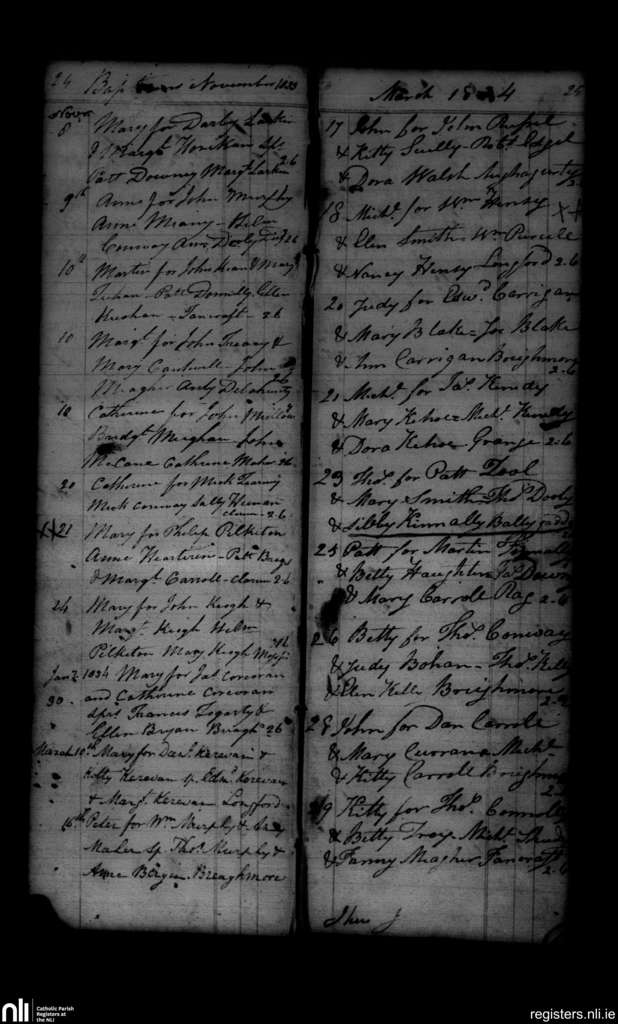 24 Baptisms November 1833
Novr
8 Mary for Darby Larkin
& Margt Honehan sps
Patt Downey Margt Larkin 2.6
9th Anne for John Murphy
Anne
Conway Ann Darby 2.6
10th Martin for John Kean & Margt
Tuhan - Patt Donnelly Ellen
Keeshan - Fancroft - 2.6
10 Margt for John Treacy &
Mary Cantwell - John
Meagher Andy Delahunty
10 Catherine for John
Bridgt Meighan John
McCane Catherine Maher 2.6
20 Catherine for Mick
Mick Conway Sally
2.6
XX 21 Mary for Philip Pilketon
Anne - Patt
& Margt Carroll - Clorun 2.6
24 Mary for John Keogh &
Margt Keigh
Pilketon Mary Keogh
Jan 2 1834 Mary for Jas Corcoran
30 and Catherine Corcoran
Sps Francis Fogarty &
Ellen Bryan 2.6
March 10th Mary for Danl Kerevan &
Kitty Kerevan sp. Edmd Kerevan
& Margt Kerevan Longford
16th Peter for Wm Murphy &
Maher sp Thos Murphy &
Anne Bergin Breaghmore
March 1834 25
17 John for John
& Kitty Scully - Robt Edge
& Dora Walsh
18 Michl for Wm Henry XX
& Ellen Smith - Wm Purcell
& Nancy Henry Longford 2.6
20 Judy for Edwd Carrigan
& Mary Blake - Jos Blake
& Ann Carrigan Boughmore
2.6
21 Michl for Jas Kenedy
& Mary Kehoe Michl Kenedy
& Dora Kehoe Grange 2.6
23 Thos for Patt Tool
& Mary Smith - Thos Dooly
& Sibby Kinnally
25 Patt for Martin
& Betty Haughten Jas
& Mary Carroll Rag 2.6
26 Betty for Thos Conway
& Judy Bohan - Thos Kelly
& Ellen Kelly Breighmore
2.6
28 John for Dan Carroll
& Mary Currana Michl
& Kitty Carroll
29 Kitty for Thos Connolly
& Betty Troy Michl
& Fanny Meagher Fancroft
2.6
nli Catholic Parish
Registers at
the NLI
registers.nli.ie